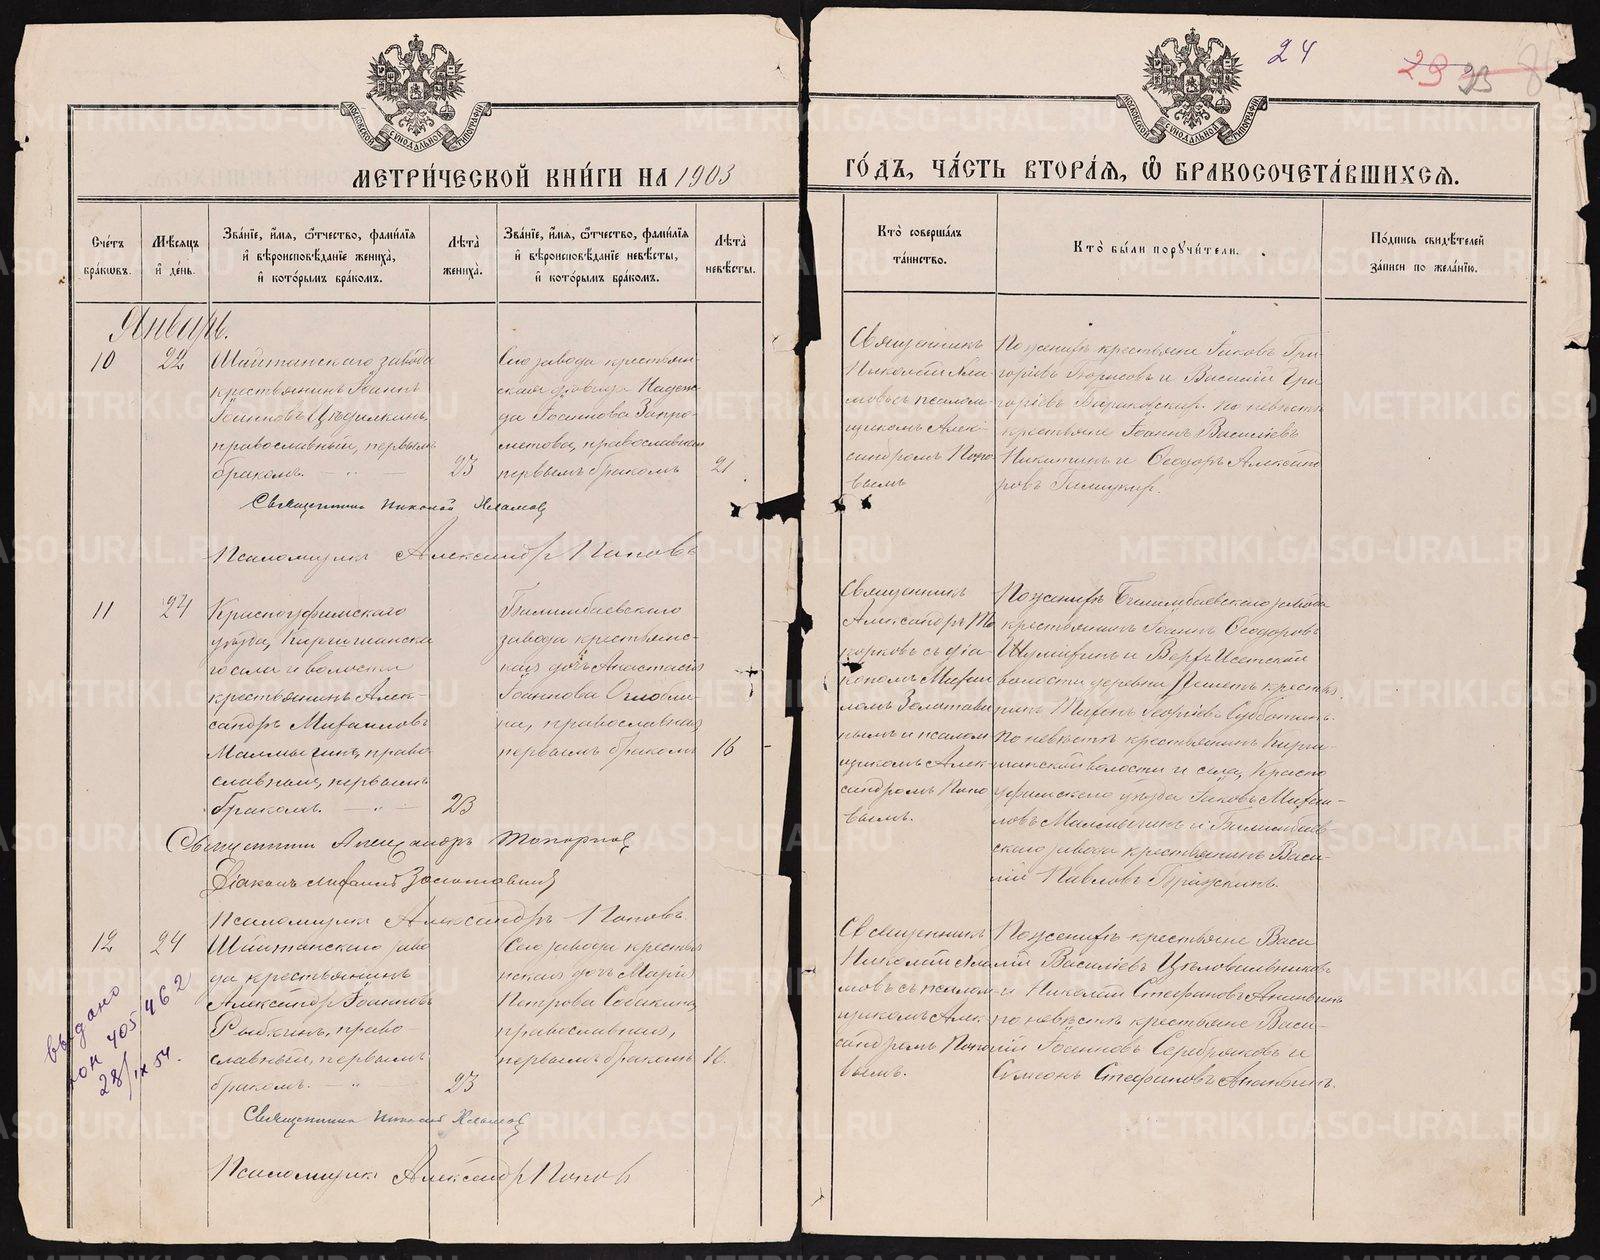 24
23 23
МОСКОВСКОЙ СѴНОДАЛЬНОЙ ТИПОГРАФІИ
МОСКОВСКОЙ СѴНОДАЛЬНОЙ ТИПОГРАФІИ
МЕТРИ́ЧЕСКОЙ КНИ́ГИ НА 1903
ГО́ДЪ, ЧА́СТЬ ВТОРА́Я, Ѽ БРАКОСОЧЕТА́ВШИХСЯ.
Сче́тъ
бра́ковъ.
Мѣ́сяцъ
и҆ де́нь.
Зва́нїе, и҆́мя, ѻ҆́тчество, фами́лїя
и҆ вѣроисповѣ́данїе жениха̀,
и҆ кото́рымъ бра́комъ.
Лѣ́та
жениха̀.
Зва́нїе, и҆́мя, ѻ҆́тчество, фами́лїя
и҆ вѣроисповѣ́данїе невѣ́сты,
и҆ кото́рымъ бра́комъ.
Лѣ́та
невѣ́сты.
Кто̀ соверша́лъ
та́инство.
Кто̀ бы́ли порꙋчи́тели.
По́дпись свидѣ́телей
за́писи по жела́нїю.
Январь.
10
22
Шайтанскаго завода
крестьянинъ Іоаннъ
Іоанновъ
православный, первымъ
бракомъ.
23
Сего завода крестьян-
ская дѣвица Надеж-
да Іоаннова Запро-
метова, православная
первымъ бракомъ
21
Священникъ
Николай Хла-
мовъ съ псалом-
щикомъ Алек-
сандромъ Попо-
вымъ
По женихѣ крестьяне Іаковъ Гри-
горіевъ Борисовъ и Василій Гри
горіевъ по невѣстѣ
крестьяне Іоаннъ Василіевъ
Никитинъ и Ѳеодоръ Александ
ровъ
Священникъ Николай Хламовъ
Псаломщикъ Александръ Поповъ
11
24
Красноуфимскаго
уѣзда, Киргишанска
го села и волости
крестьянинъ Алек-
сандръ Михаиловъ
Малмыгинъ, право-
славный, первымъ
бракомъ.
23
Билимбаевскаго
завода крестьянс-
кая дочь Анастасія
Іоаннова Оглобли-
на, православная
первымъ бракомъ
16
Священникъ
Александръ То
порковъ съ діа-
кономъ Михаи
ломъ Золотави
нымъ и псалом
щикомъ Алек-
сандромъ Попо
вымъ.
По женихѣ Билимбаевскаго завода
крестьянинъ Іоаннъ Ѳеодоровъ
и Верхъ-Исетской
волости деревни крестья
нинъ Тихонъ Георгіевъ Субботинъ.
По невѣстѣ крестьянинъ Кирги-
шанской волости и села, Красно
уфимскаго уѣзда Іаковъ Михаи-
ловъ Малмыгинъ и Билимбаев-
скаго завода крестьянинъ Васи-
лій Павловъ
Священникъ Александръ Топорковъ
Діаконъ Михаилъ Золотавинъ
Псаломщикъ Александръ Поповъ.
12
24
Шайтанскаго заво
да крестьянинъ
Александръ Іоанновъ
Рыбкинъ, право-
славный, первымъ
бракомъ.
23
Сего завода крестья
нская дочь Марія
Петрова Собакина,
православная,
первымъ бракомъ
16.
Священникъ
Николай Хла
мовъ съ псалом-
щикомъ Алек-
сандромъ Попо
вымъ.
По женихѣ крестьяне Васи
лій Василіевъ Цѣловальниковъ
и Николай Стефановъ Ананьинъ
по невѣстѣ крестьяне Васи-
лій Іоанновъ Серебряковъ и
Симеонъ Стефановъ Ананьинъ.
Священникъ Николай Хламовъ
Псаломщикъ Александръ Поповъ
выдано
405462
28/IX 54.
METRIKI.GASO-URAL.RU